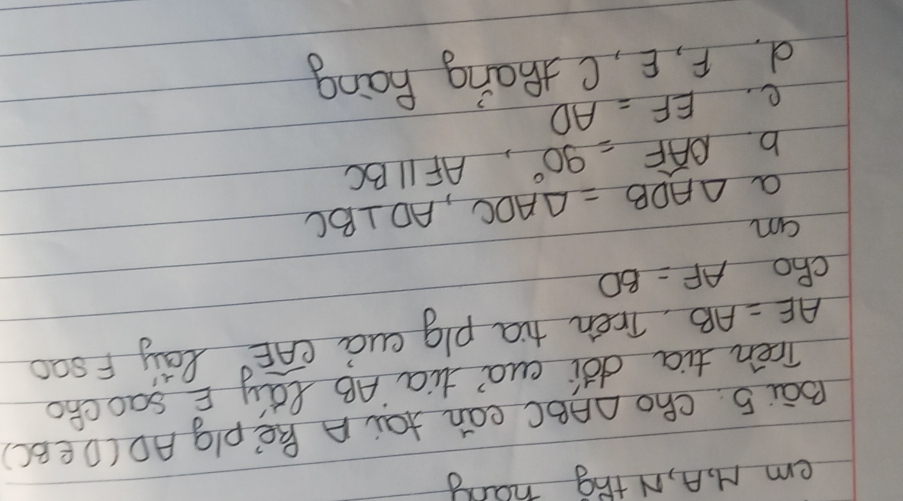 em M,A,N thg hàng
Bài 5. Cho ΔABC cân tại A kẻ plg AD (D ∈ BC)
Trên tia đối của tia AB lấy E sao cho
AE = AB. Trên tia plg của CAE lấy F sao
cho AF = BD
cm
a ΔADB = ΔADC, AD⊥BC
b. DAF = 90°, AF//BC
c. EF = AD
d. F, E, C thẳng hàng